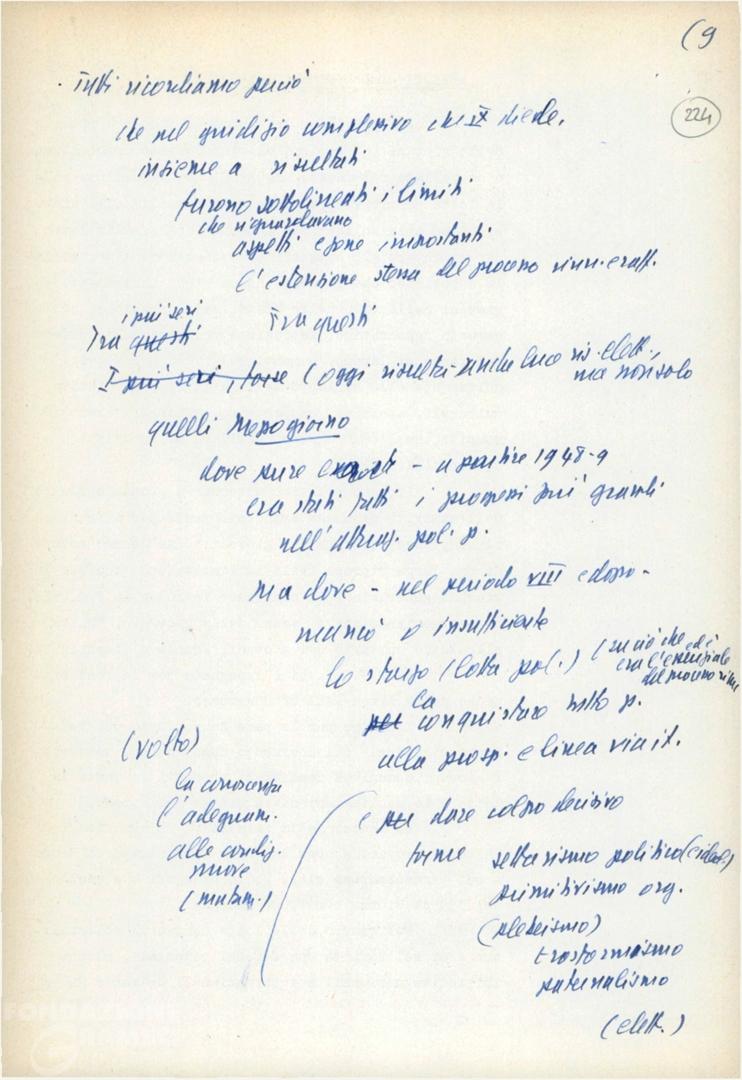 (9
224
. Tutti ricordiamo perciò
che nel giudizio complessivo che IX diede,
insieme a risultati
furono sottolineati i limiti
che riguardavano
aspetti e zone importanti
l'estensione stessa del processo rinn. e raff.
i più seri
Tra questi Tra questi
I più seri, forse (oggi risulta anche luce ris. elett.,
ma non solo
quelli Mezzogiorno
dove pure - a partire 1948-9
era stati fatti i progressi più grandi
nell'attuaz. pol. p.
ma dove - nel periodo VIII e dopo -
mancò o insufficiente
lo sforzo (lotta pol.) (ciò che ed è
era l'essenziale
del processo rinn.
la
per conquistare tutto p.
alla prosp. e linea via it.
(volto)
la conoscenza
l'adeguam.
alle condiz.
nuove
(mutam.)
e per dare colpo decisivo
forme settarismo politico (e ideol.)
primitivismo org.
(plebeismo)
trasformismo
paternalismo
(elett.)
FONDAZIONE
GRAMSCI